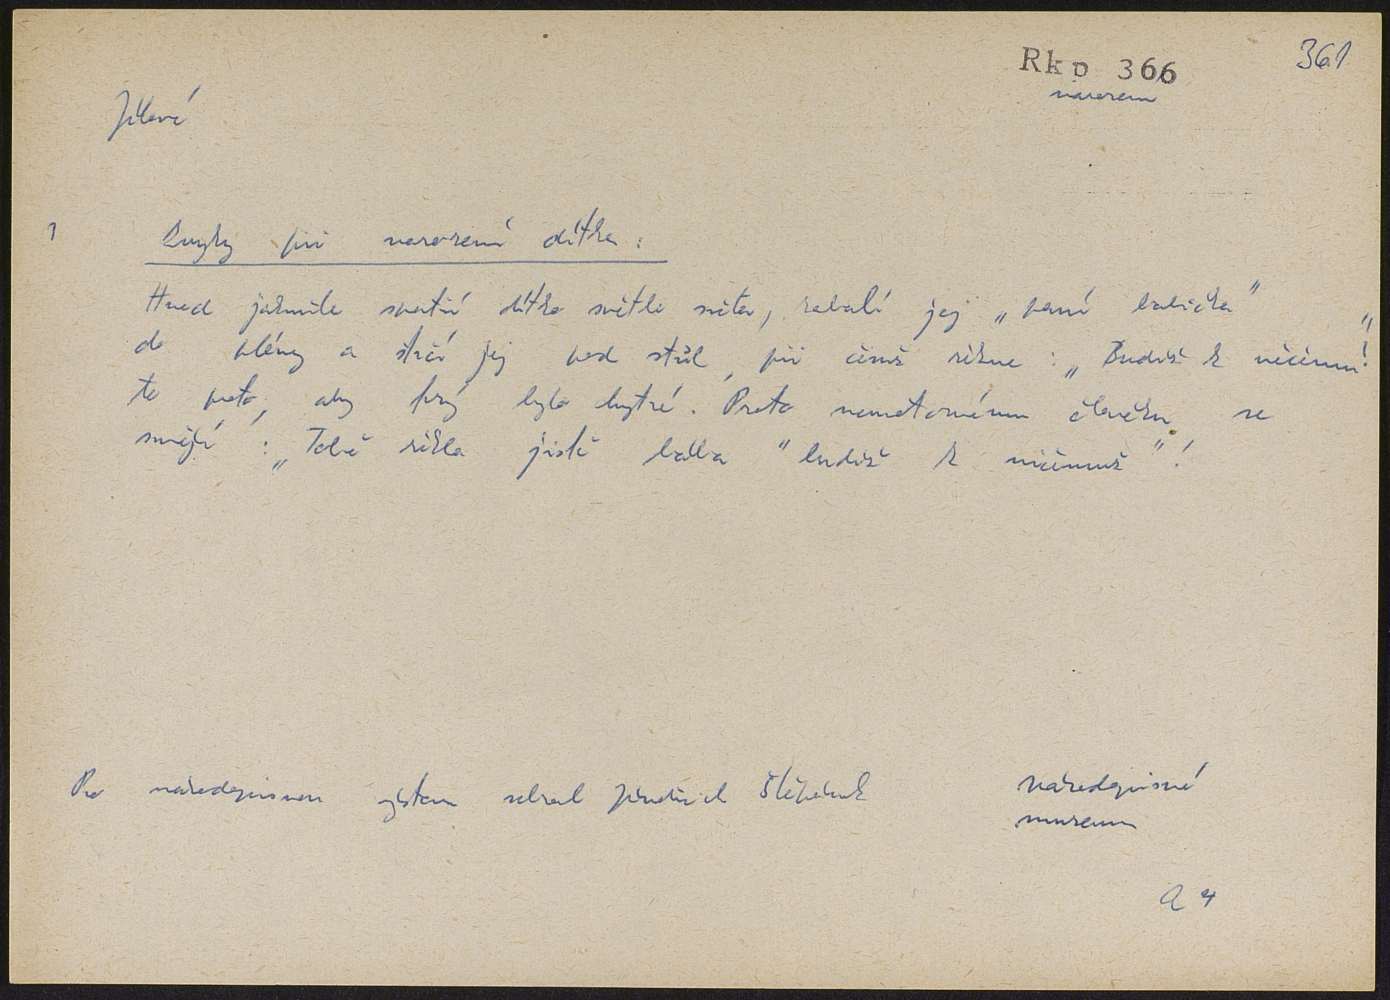 Rkp 366
361
narození
Jílové
1
Zvyky při narození dítka:
Hned jakmile spatří dítko světlo světa, zabalí jej „paní babička"
do plény a strčí jej pod stůl, při čemž řekne: „Budiž k něčemu!"
to proto, aby prý bylo bystré. Proto nemotornému člověku se
smějí: „Tobě řekla jistě bába "budiž k ničemuž"!
Pro národopisnou výstavu sebral Jindřich Štěpánek
Národopisné
museum
A 4